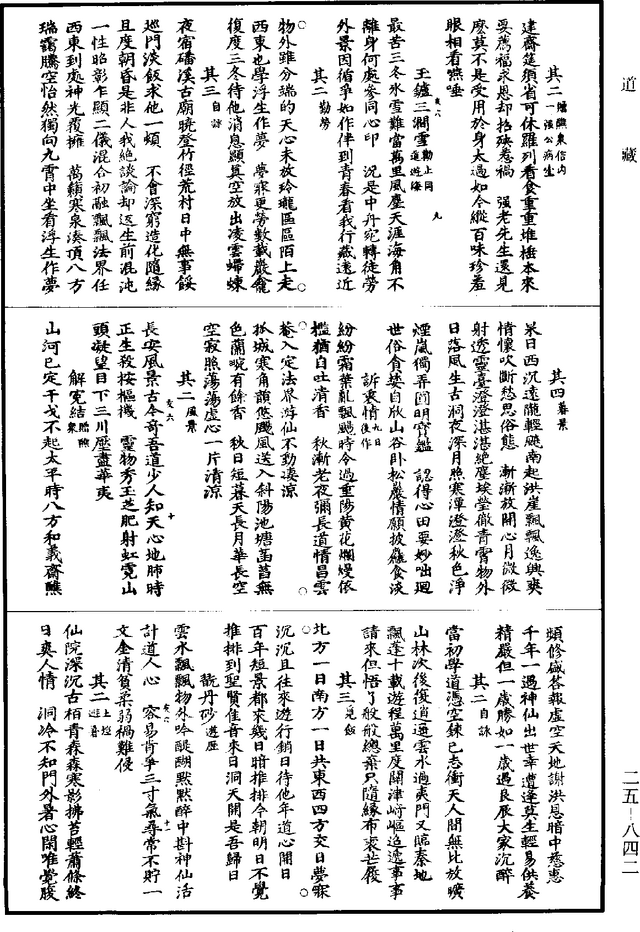 道藏
其二 贈醮衆信內一張公病生
建齋筵須省可休羅列看食重重堆楱本來
要薦福求恩却招殃惹禍　强老先生還見
麼莫不是受用於身太過如今縱百味珍羞
眼相看嚥唾
玉鑪三澗雪 勸上同道遊海
最苦三冬氷雪難當萬里風塵天涯海角不
離身何處參同心印　況是中丹宛轉徒勞
外景因循爭如作伴到青春看我行藏遠近
其二 勤勞
物外雖分瑞的天心未放玲瓏區區陌上走
西東也學浮生作夢　夢寐更勞數載巖龕
復度三冬待他消息顯真空放出凌雲螮蝀
其三 自詠
夜宿磻溪古廟曉登竹徑荒村日中無事餒
巡門淡飯求他一頓　不會深窮造化隨緣
且度朝昏是非人我絶談論却返生前混沌
一性昭彰乍顯二儀混合初融飄飄法界任
西東到處神光覆擁　萬顆寒泉湊頂八方
瑞靄騰空怡然獨向九霄中坐看浮生作夢
其四 暮景
杲日西沉遠隴輕颷南起洪崖飄飄逸興爽
情懷吹斷愁思俗態　漸漸放開心月微微
射透靈臺澄澄湛湛絶塵埃瑩徹青霄物外
日落風生古洞夜深月照寒潭澄澄秋色淨
煙嵐獨弄圓明寶鑑　認得心田要妙咄廻
世俗貪婪自欣山谷卧松巖情願披麤食淡
訴衷情 九日後作
紛紛霜葉亂飄颺時今過重陽黄花爛熳依
檻猶自吐清香　秋漸老夜彌長道情昌雲
菴入定法界游仙不動凄涼
孤城寒角韻悠颺風送入斜陽池塘菡萏無
色蘭畹有餘香　秋日短暮天長月華長空
空寂照蕩蕩虚心一片清涼
其二 風景
長安風景古今奇吾道少人知天心地肺時
正生殺按樞機　靈物秀玉芝肥射虹霓山
頭凝望目下三川壓盡華夷
解寃結 贈醮衆
山河已定干戈不起太平時八方和義齋醮
頻修盛荅報虚空天地謝洪恩暗中慈惠
千年一遇神仙出世幸遭逢莫生輕易供養
精嚴但一歲勝如一歲遇良辰大家沉醉
其二 自詠
當初學道憑空鍊已志衝天人間無比放曠
山林次後復逍遥雲水過夷門又臨秦地
飄蓬十載遊程萬里度關津崎嶇迢遞事事
請來但悟了般般總棄只隨緣布裘芒履
其三 乞飯
北方一日南方一日共東西四方交日夢寐
沉沉且往來遊行銷日待他年道心開日
百年短景都來幾日暗推排今朝明日不覺
推排到聖賢佳音來日洞天開是吾歸日
翫丹砂 遊歷
雲水飄飄物外吟醍醐默默醉中斟神仙活
計道人心　容易肯爭三寸氣尋常不貯一
文金清貧柔弱禍難侵
其二 上燈遊春
仙院深沉古栢青森森寒影拂苔輕蕭條終
日爽人情　洞冷不知門外暑心閑唯覺腹
二五－八四二